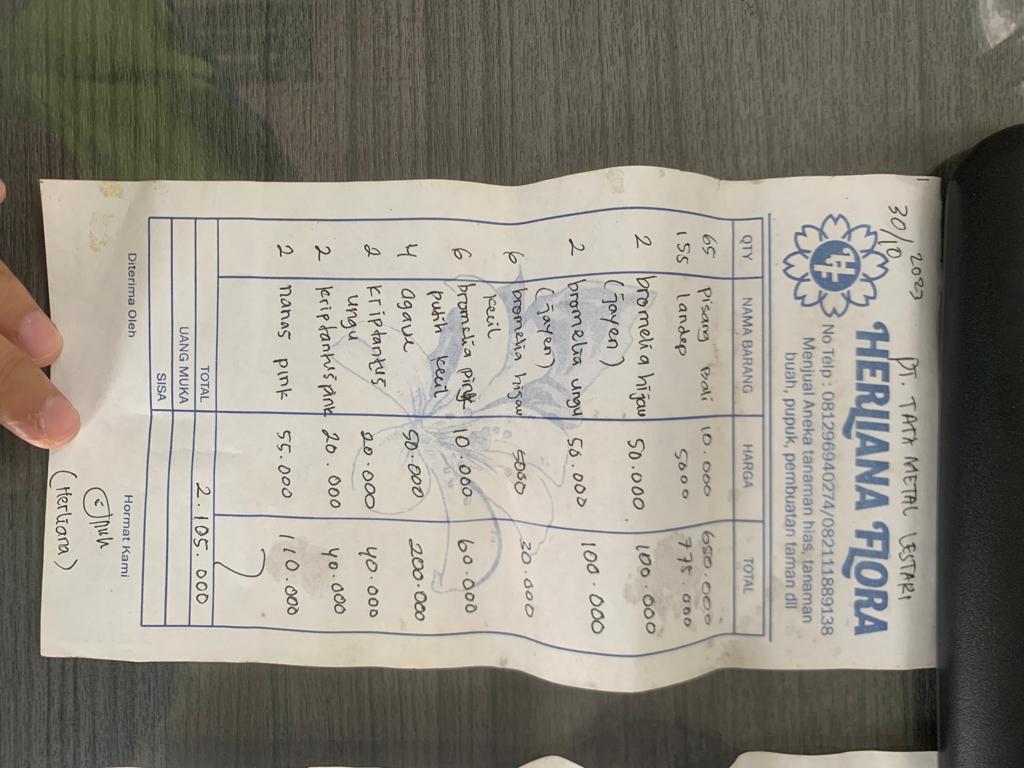 30/10 2023 PT. TATA METAL LESTARI
HERLIANA FLORA
No Telp : 081296940274/082111889138
Menjual Aneka tanaman hias, tanaman
buah, pupuk, pembuatan taman dll
QTY NAMA BARANG HARGA TOTAL
65 pisang Bali 10.000 650.000
155 landep 5000 775.000
2 bromelia hijau 50.000 100.000
(jayen)
2 bromelia ungu 50.000 100.000
(jayen)
6 bromelia hijau 5000 30.000
kecil
6 bromelia pink 10.000 60.000
putih kecil
4 agave 50.000 200.000
2 kriptantus 20.000 40.000
ungu
2 kriptantus pink 20.000 40.000
2 nanas pink 55.000 110.000
TOTAL 2.105.000
UANG MUKA
SISA
Diterima Oleh Hormat Kami
(Herliana)